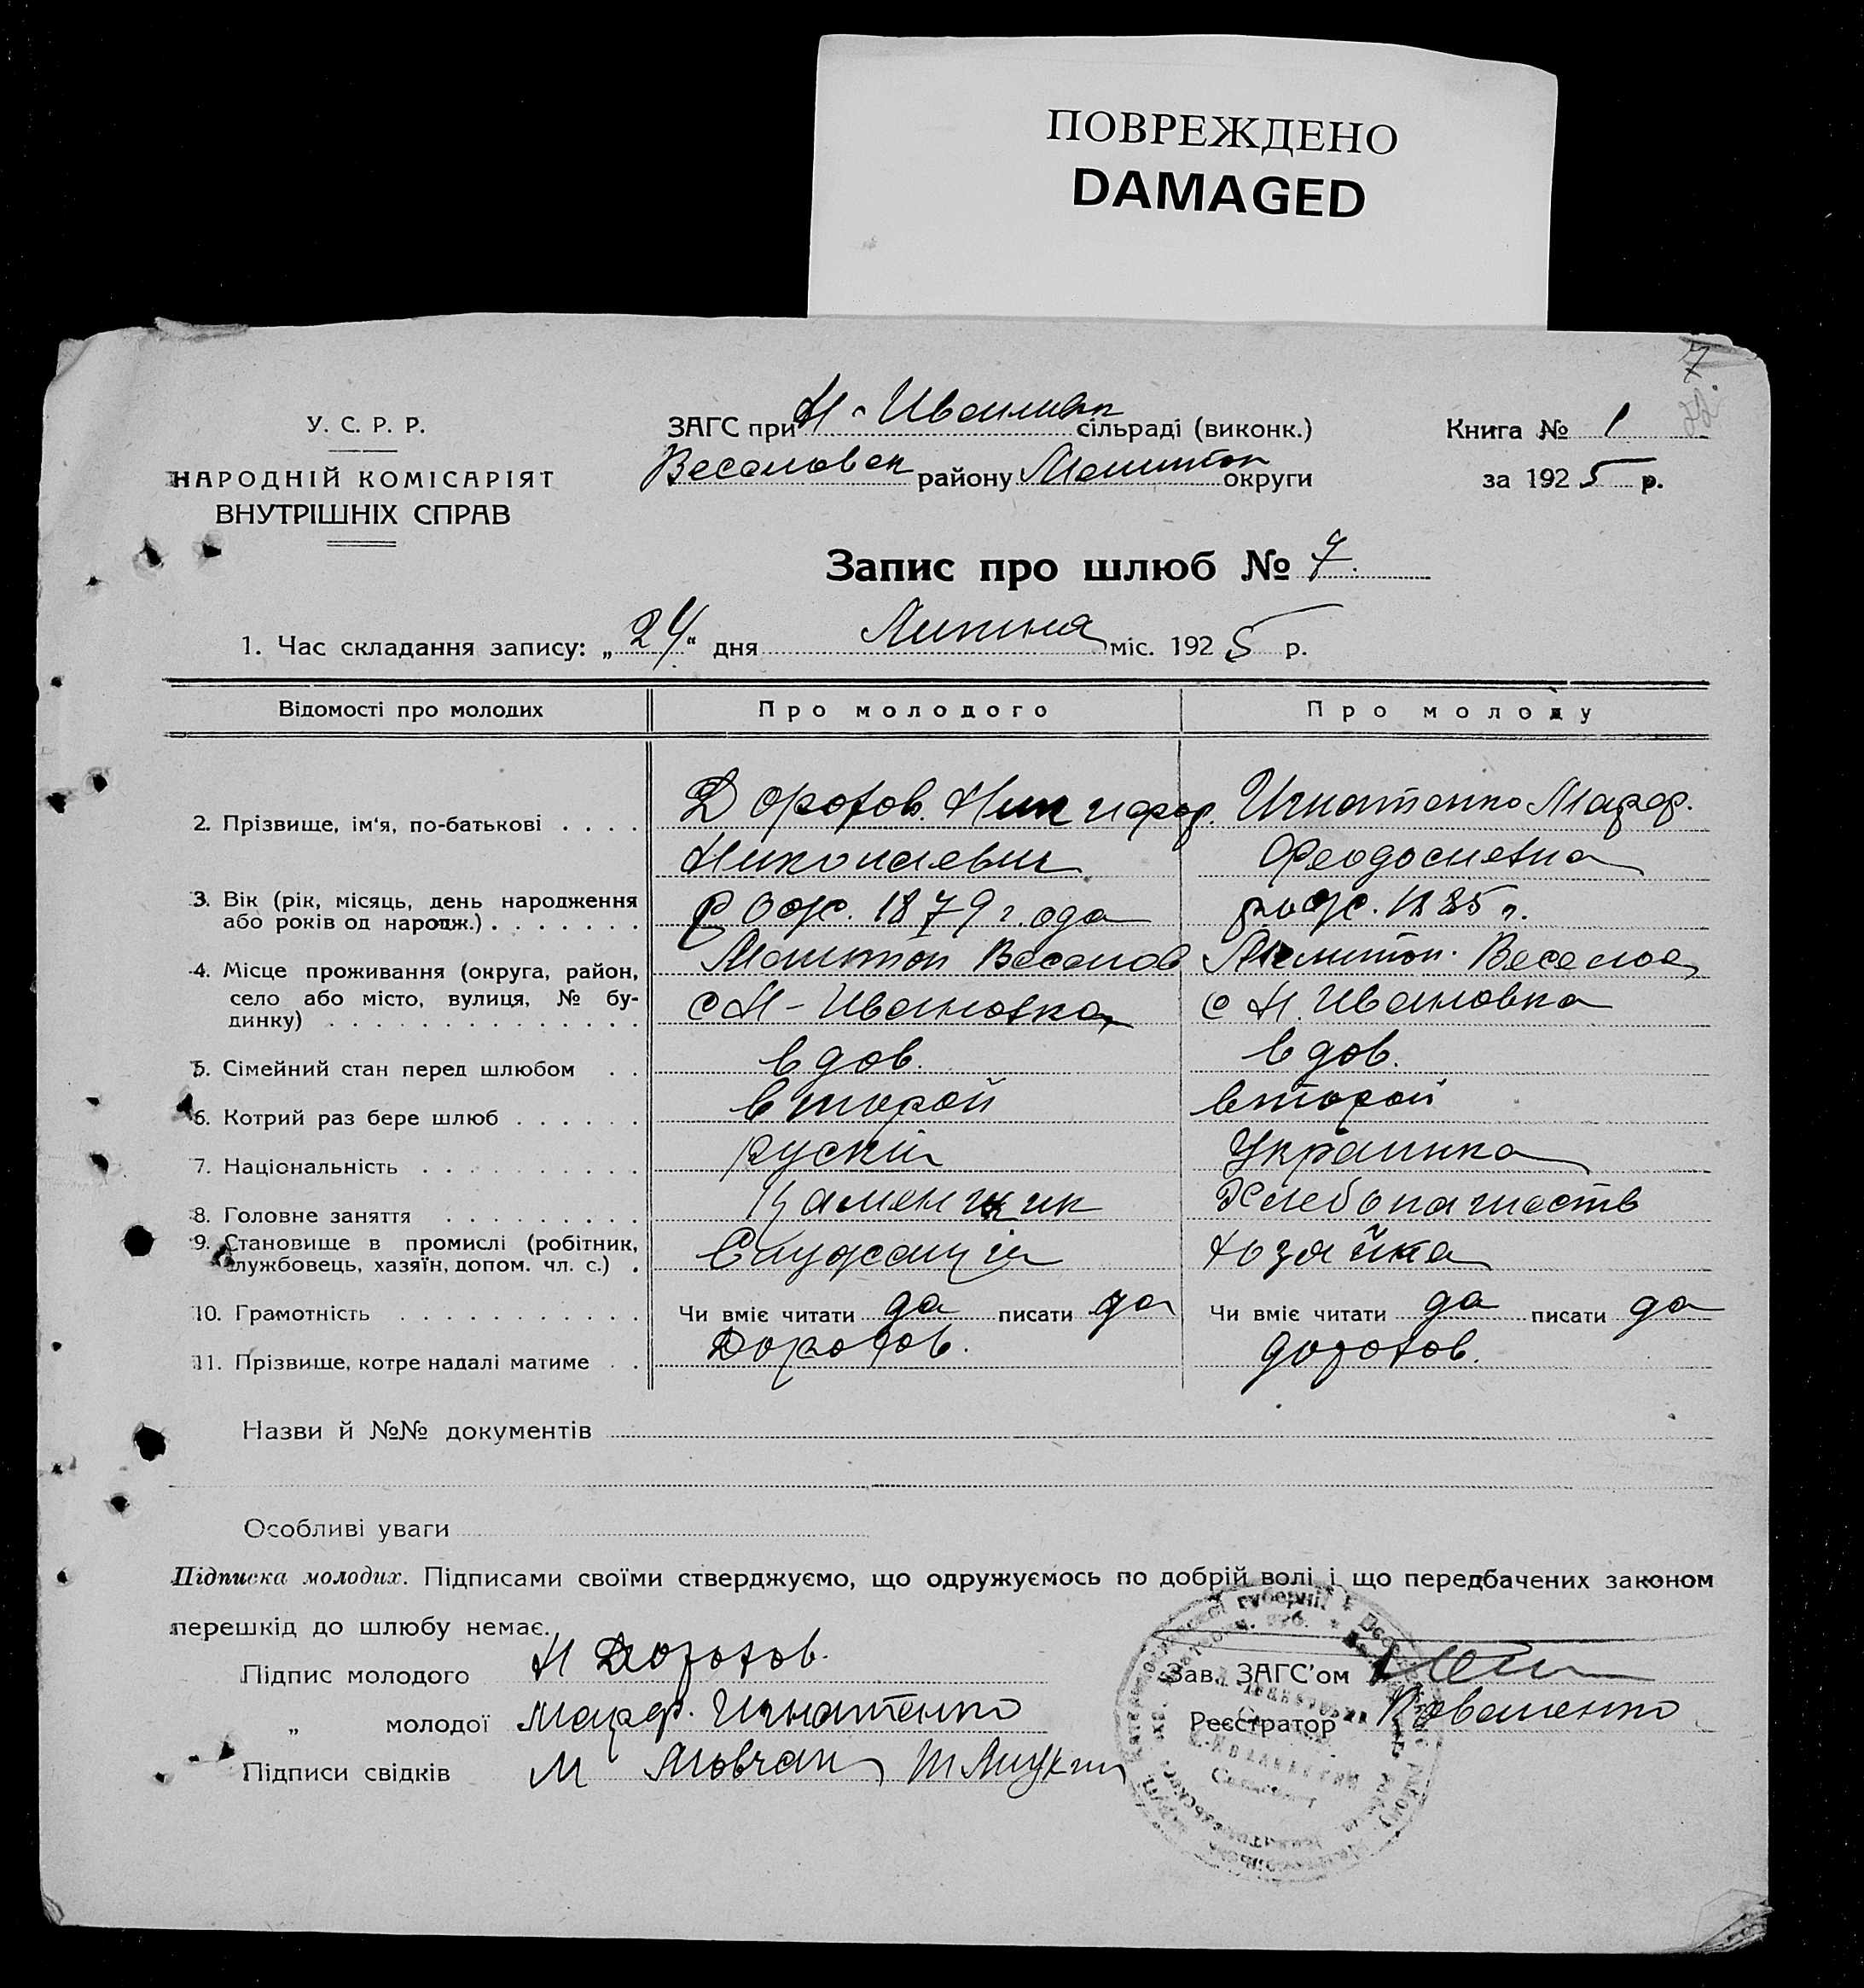 ПОВРЕЖДЕНО
DAMAGED
7
У. С. Р. Р.
НАРОДНІЙ КОМІСАРІЯТ
ВНУТРІШНІХ СПРАВ
ЗАГС при Н-Ивановск сільраді (виконк.)
Веселовск району Мелитоп округи
Книга № 1
за 1925 р.
Запис про шлюб № 7.
1. Час складання запису: „24“ дня Липня міс. 1925 р.
Відомості про молодих Про молодого Про молоду
2. Прізвище, ім'я, по-батькові Доротов. Никифор. Игнатенко Марф.
Николаевич Феодосиевна
3. Вік (рік, місяць, день народження рож. 1879 года рож. 1885 г.
або років од народж.)
4. Місце проживання (округа, район, Мелитоп Веселов Мелитоп. Веселов
село або місто, вулиця, № бу- с Н-Ивановка с Н. Ивановка
динку)
5. Сімейний стан перед шлюбом вдов. вдов.
6. Котрий раз бере шлюб второй второй
7. Національність рускій Украинка
8. Головне заняття Каменщик Хлебопашеств
9. Становище в промислі (робітник, Служащій хозяйка
службовець, хазяїн, допом. чл. с.)
10. Грамотність Чи вміє читати да писати да Чи вміє читати да писати да
11. Прізвище, котре надалі матиме Доротов. Доротов.
Назви й №№ документів
Особливі уваги
Підписка молодих. Підписами своїми стверджуємо, що одружуємось по добрій волі і що передбачених законом
перешкід до шлюбу немає.
Підпис молодого Н Доротов.
„ молодої Марф. Игнатенко
Підписи свідків М Мовчан
Зав. ЗАГС'ом
Реєстратор Коваленко